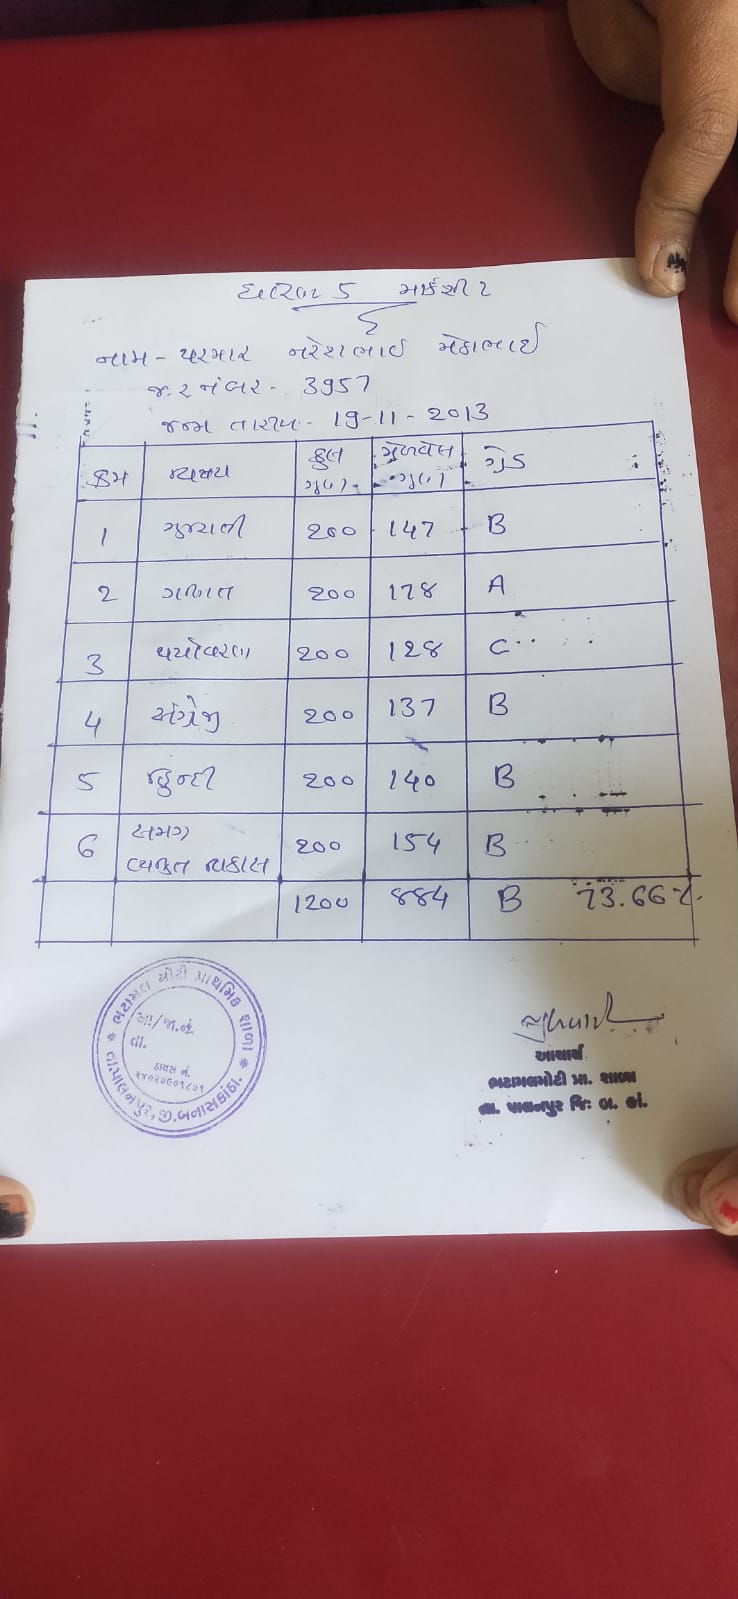 ધોરણ 5 માર્કશીટ
નામ - પરમાર નરેશભાઈ
જ.ર નંબર - 3957
જન્મ તારીખ - 19-11-2013
ક્રમ વિષય કુલ ગુણ મેળવેલ ગુણ ગ્રેડ
1 ગુજરાતી 200 147 B
2 ગણિત 200 178 A
3 પર્યાવરણ 200 128 C
4 અંગ્રેજી 200 137 B
5 હિન્દી 200 140 B
6 સમગ્ર વ્યકિત વિકાસ 200 154 B
1200 884 B 73.66%.
* ભટામલ મોટી પ્રાથમિક શાળા *
તા.પાલનપુર,જી.બનાસકાંઠા.
આ/જા.નં.
તા.
ડાયસ નં.
આચાર્ય
ભટામલમોટી પ્રા. શાળા
તા. પાલનપુર જિ. બ. કાં.